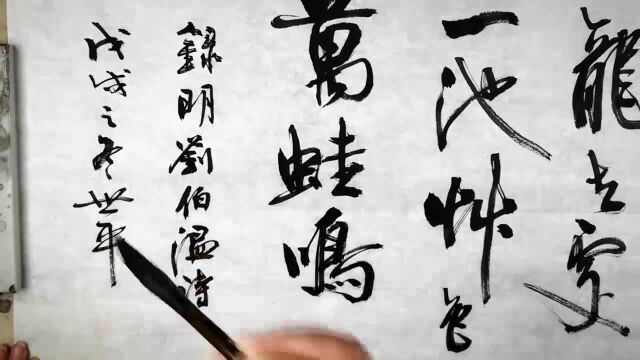 龍去處
一池艸色
萬蛙鳴
錄明劉伯溫詩
戊戌之冬世平